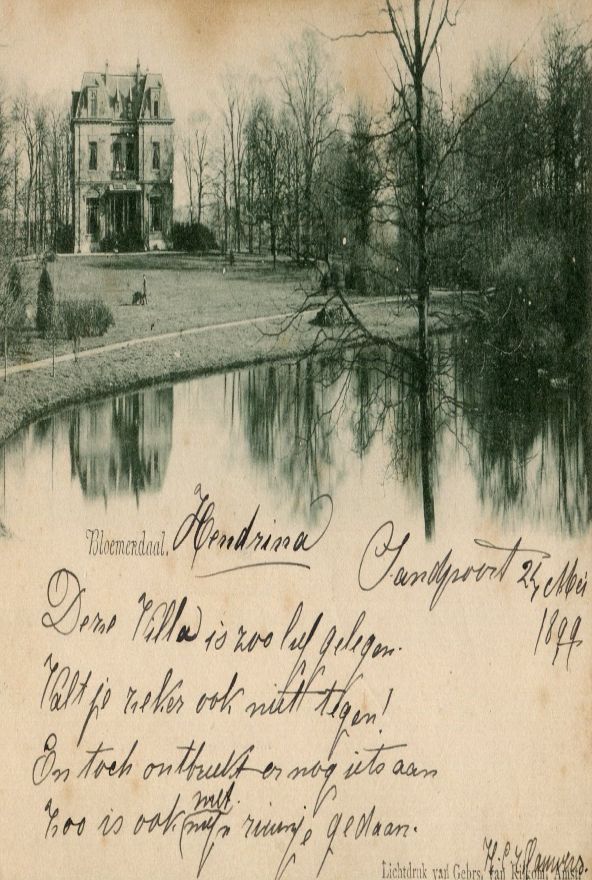 Bloemendaal. Hendrina
Sandpoort 24 Mei
1899
Deze Villa is zoo lief gelegen.
Valt je zeker ook niet tegen!
En toch ontbreekt er nog iets aan
Zoo is ook met mijn zieuwtje gedaan.
Lichtdruk van Gebrs. van Rijkom, Amst